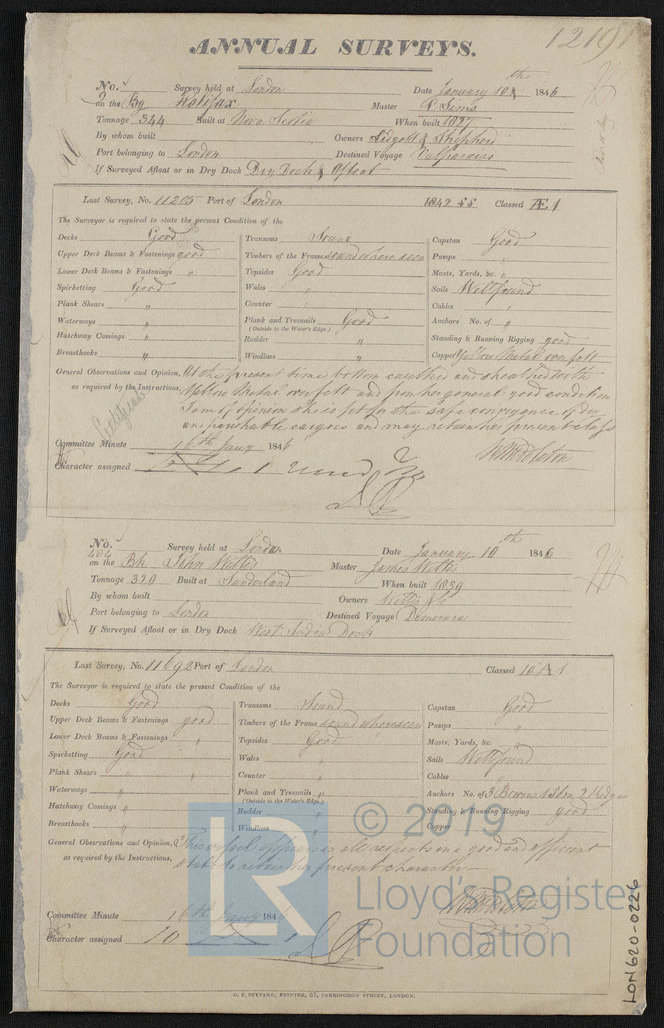 12191
ANNUAL SURVEYS.
No. Survey held at London Date January 10th 1846
on the Bg Halifax Master P. Sims
Tonnage 344 Built at Nova Scotia When built 1827
By whom built Owners Lidgett & Shepherd
Port belonging to London Destined Voyage Valparaiso
If Surveyed Afloat or in Dry Dock Dry Dock & Afloat
Last Survey, No. 11205 Port of London 1842 55 Classed Æ 1
The Surveyor is required to state the present Condition of the
Decks Good Transoms Sound Capstan Good
Upper Deck Beams & Fastenings good Timbers of the Frame sound where seen Pumps "
Lower Deck Beams & Fastenings " Topsides Good Masts, Yards, &c. "
Spirketting Good Wales " Sails Well found
Plank Shears " Counter " Cables "
Waterways " Plank and Treenails Good Anchors No. of "
(Outside to the Water's Edge.)
Hatchway Comings " Rudder " Standing & Running Rigging good
Breasthooks " Windlass " Copper Yellow Metal over felt
General Observations and Opinion, At the present time bottom caulked and sheathed with
as required by the Instructions, Yellow Metal over felt and from her general good condition
I am of opinion she is fit for the safe conveyance of dry
and perishable cargoes and may retain her present class
Certificate
Committee Minute 16th Jany 1846
Character assigned
No. 484 Survey held at London Date January 10th 1846
on the Bk John Witts Master James Witts
Tonnage 320 Built at Sunderland When built 1839
By whom built Owners Witts & Co
Port belonging to London Destined Voyage Demerara
If Surveyed Afloat or in Dry Dock West India Dock
Last Survey, No. 11692 Port of London Classed 10 A 1
The Surveyor is required to state the present Condition of the
Decks Good Transoms Sound Capstan Good
Upper Deck Beams & Fastenings good Timbers of the Frame sound where seen Pumps "
Lower Deck Beams & Fastenings " Topsides Good Masts, Yards, &c. "
Spirketting Good Wales " Sails Well found
Plank Shears " Counter " Cables "
Waterways " Plank and Treenails " Anchors No. of 3 Bowers 1 Stm 2 Kedges
(Outside to the Water's Edge.)
Hatchway Comings " Rudder " Standing & Running Rigging good
Breasthooks " Windlass " Copper
General Observations and Opinion, This vessel appears in all respects in a good and efficient
as required by the Instructions, state to retain her present character
Committee Minute 16th Jany 1846
Character assigned 10 A 1
G. F. SEYFANG, PRINTER, 57, FARRINGDON STREET, LONDON.
LR
© 2019
Lloyd's Register
Foundation
LON620-0226